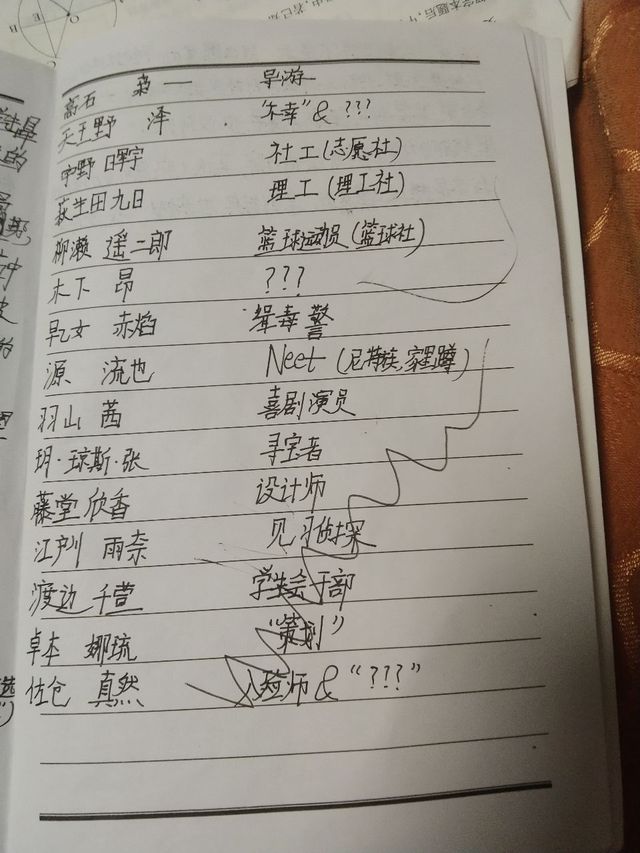 高石 枭一 导游
天王野 泽 "不幸" & ???
宇野 日翔宇 社工(志愿社)
萩生田九日 理工(理工社)
柳濑 遥二郎 篮球运动员(篮球社)
木下 昂 ???
早乙女 赤焰 缉毒警
源 流也 Neet(尼特族,家里蹲)
羽山 茜 喜剧演员
玥·琼斯·张 寻宝者
藤堂 欣香 设计师
江户川 雨奈 见习侦探
渡边 千萱 学生会干部
卓本 娜琉 "策划"
佐仓 真然 入殓师 & "???"